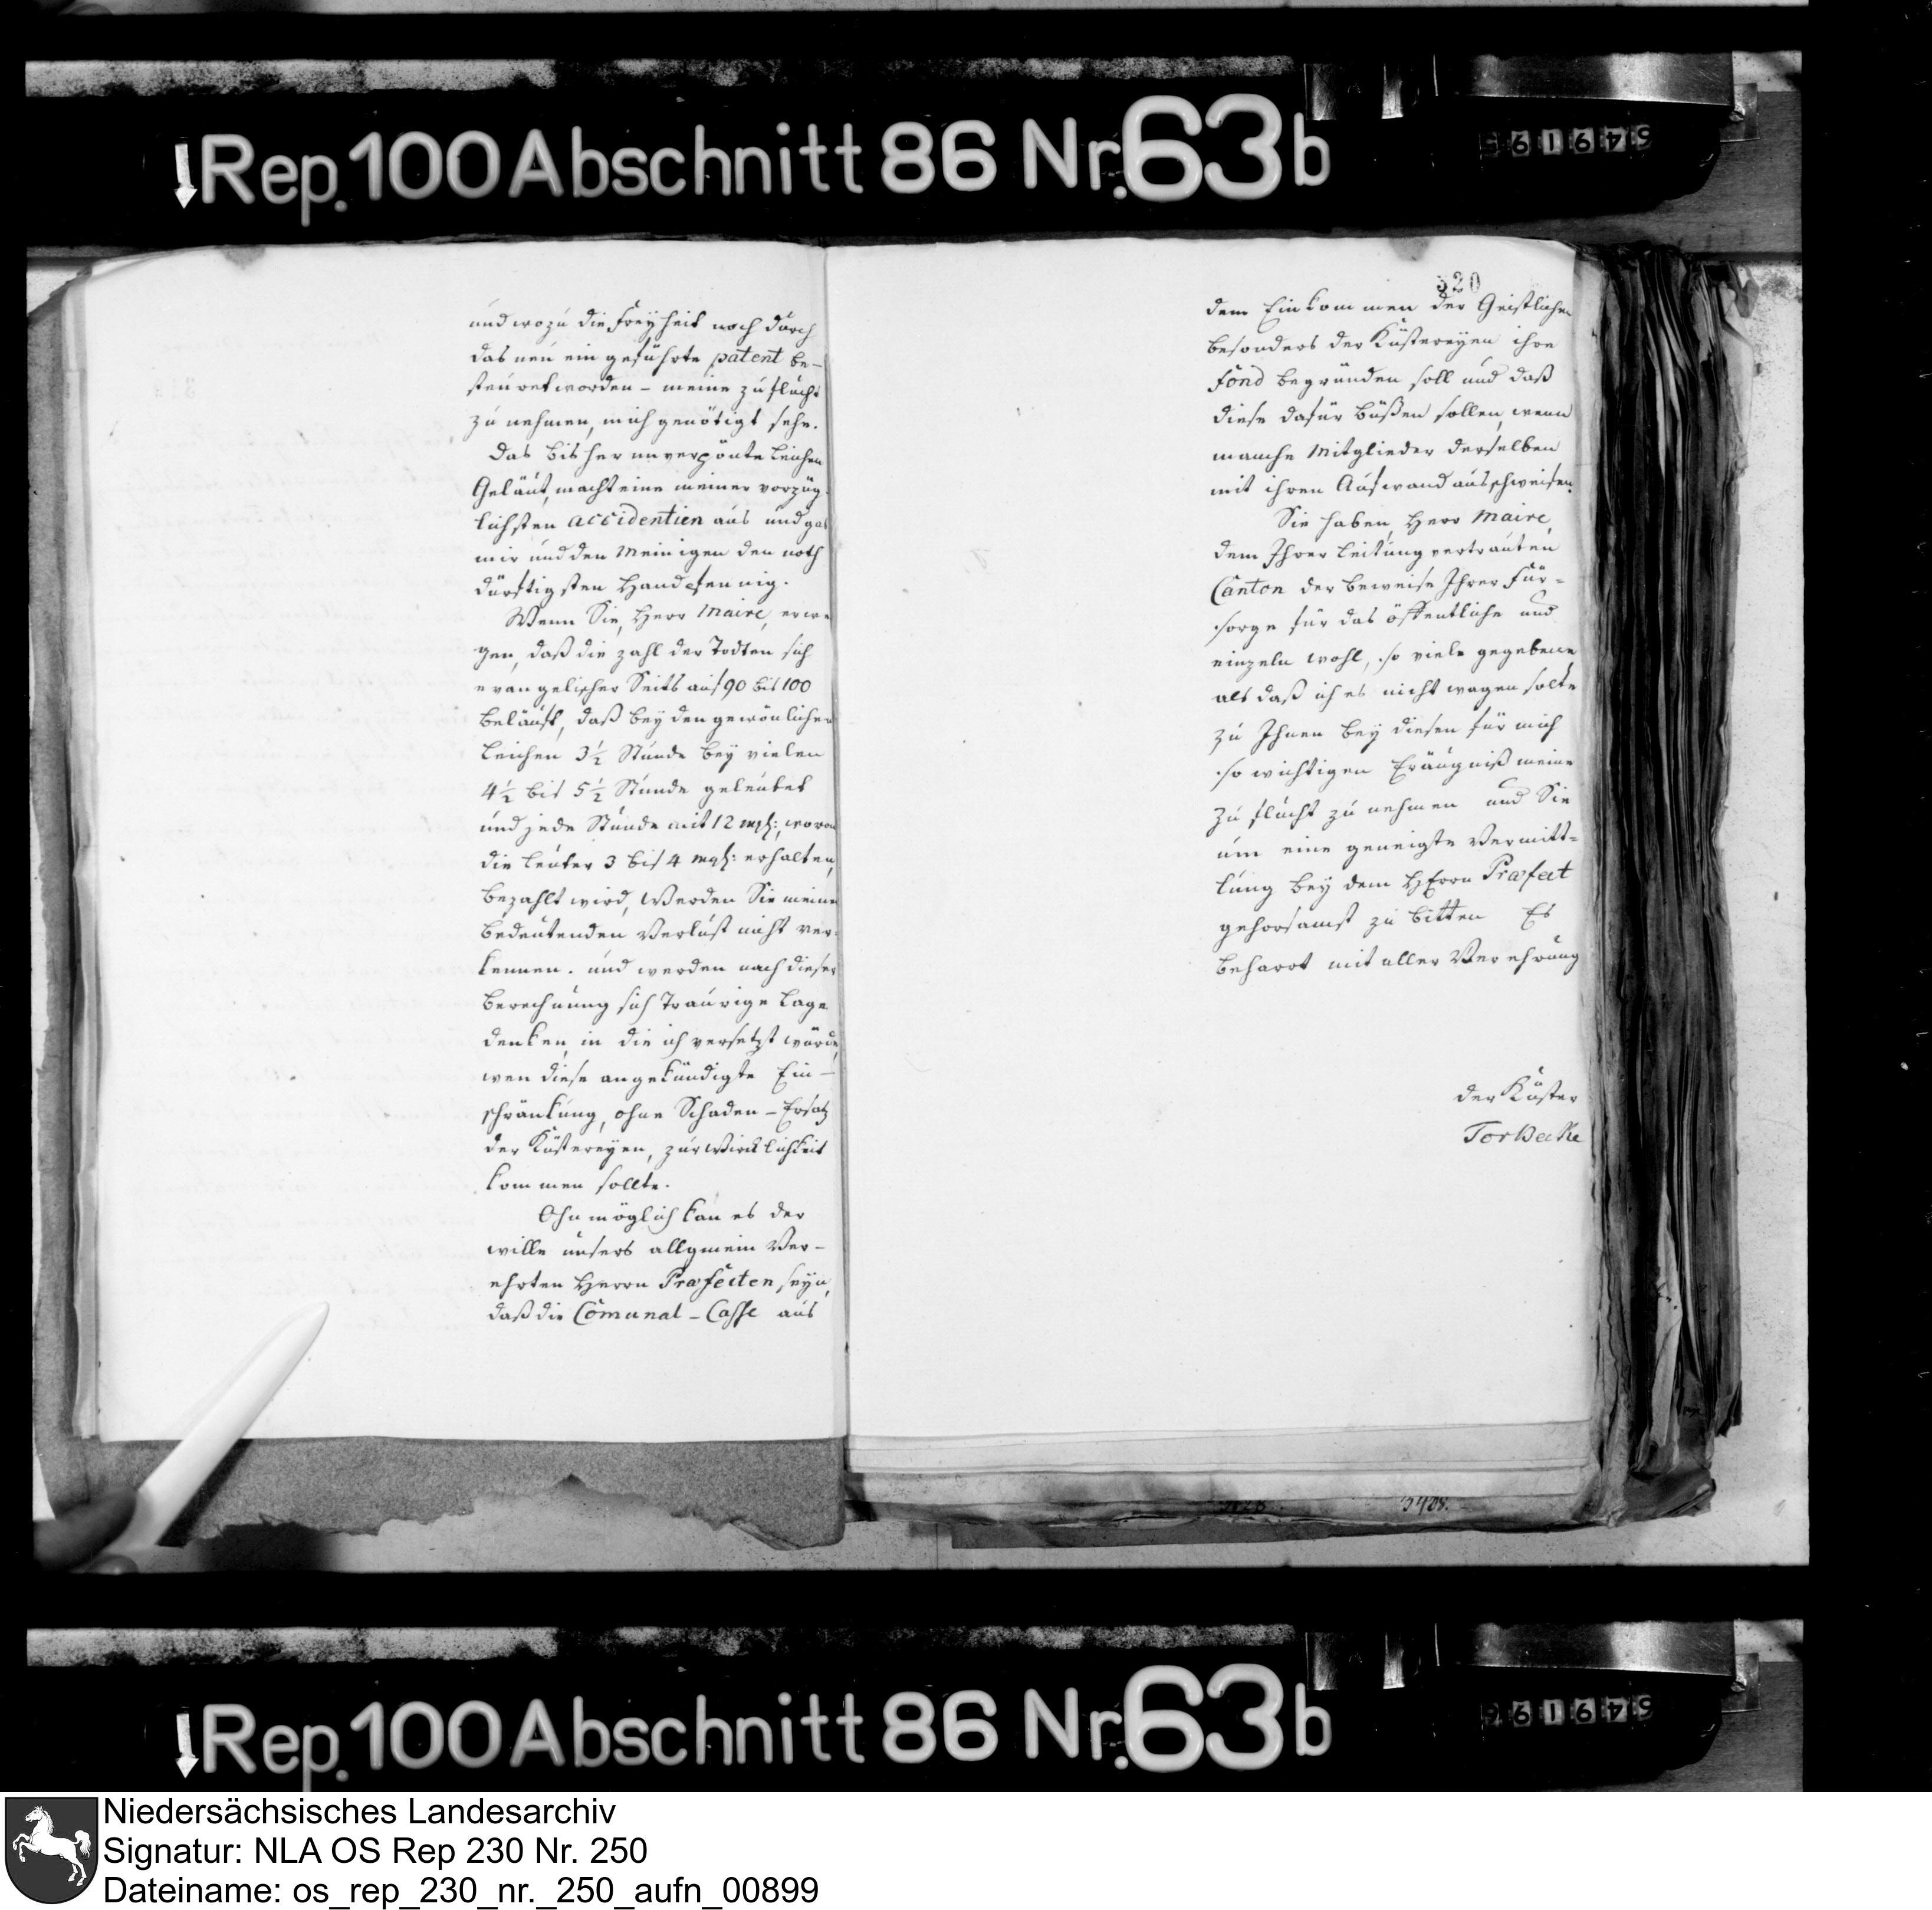 Rep. 100 Abschnitt 86 Nr. 63b
549195
und wozu die Freyheit noch durch
das neu eingeführte patent be-
steuret worden - meine zuflucht
zu nehmen, mich genötigt sehe.
Das bisher unverpönte Leichen
Geläut, macht eine meiner vorzüg-
lichsten accidentien aus und gab
mir und den Meinigen den noth
dürftigsten Handpfennig.
Wenn Sie, Herr Maire, erwe
gen, daß die zahl der Todten sich
evangelischer Seits auf 90 bis 100
beläuft, daß bey den gewönlichen
Leichen 3½ Stunde bey vielen
4½ bis 5½ Stunde geleutet
und jede Stunde mit 12 mgl:, wovon
die Leuter 3 bis 4 mgl: erhalten,
bezahlt wird, Werden Sie meinen
bedeutenden Verlust nicht ver-
kennen. und werden nach dieser
berechnung sich Traurige Lage
denken, in die ich versetzt würde,
wen diese angekündigte Ein-
schränkung, ohne Schaden-Ersatz
der Küstereyen, zur Wircklichkeit
kommen sollte.
Ohnmöglich kan es der
wille unsers allgmein Ver-
ehrten Herrn Præfecten seyn,
daß die Comunal-Casse aus
320
dem Einkommen der Geistlichen
besonders der Küstereyen ihre
Fond begründen soll und daß
diese dafür büßen sollen, wenn
manche Mitglieder derselben
mit ihren Aufwand ausschweifen.
Sie haben, Herr Maire,
dem Ihrer Leitung vertrauten
Canton der beweise Ihrer Für-
sorge für das öffentliche und
einzeln wohl, so viele gegebene
als daß ich es nicht wagen solte
zu Ihnen bey diesen für mich
so wichtigen Eräugniß meine
zuflucht zu nehmen und Sie
um eine geneigte Vermitt-
lung bey dem HErrn Præfect
gehorsamst zu bitten Es
beharrt mit aller Verehrung
der Küster
Torbecke
5408.
Rep. 100 Abschnitt 86 Nr. 63b
549196
Niedersächsisches Landesarchiv
Signatur: NLA OS Rep 230 Nr. 250
Dateiname: os_rep_230_nr._250_aufn_00899